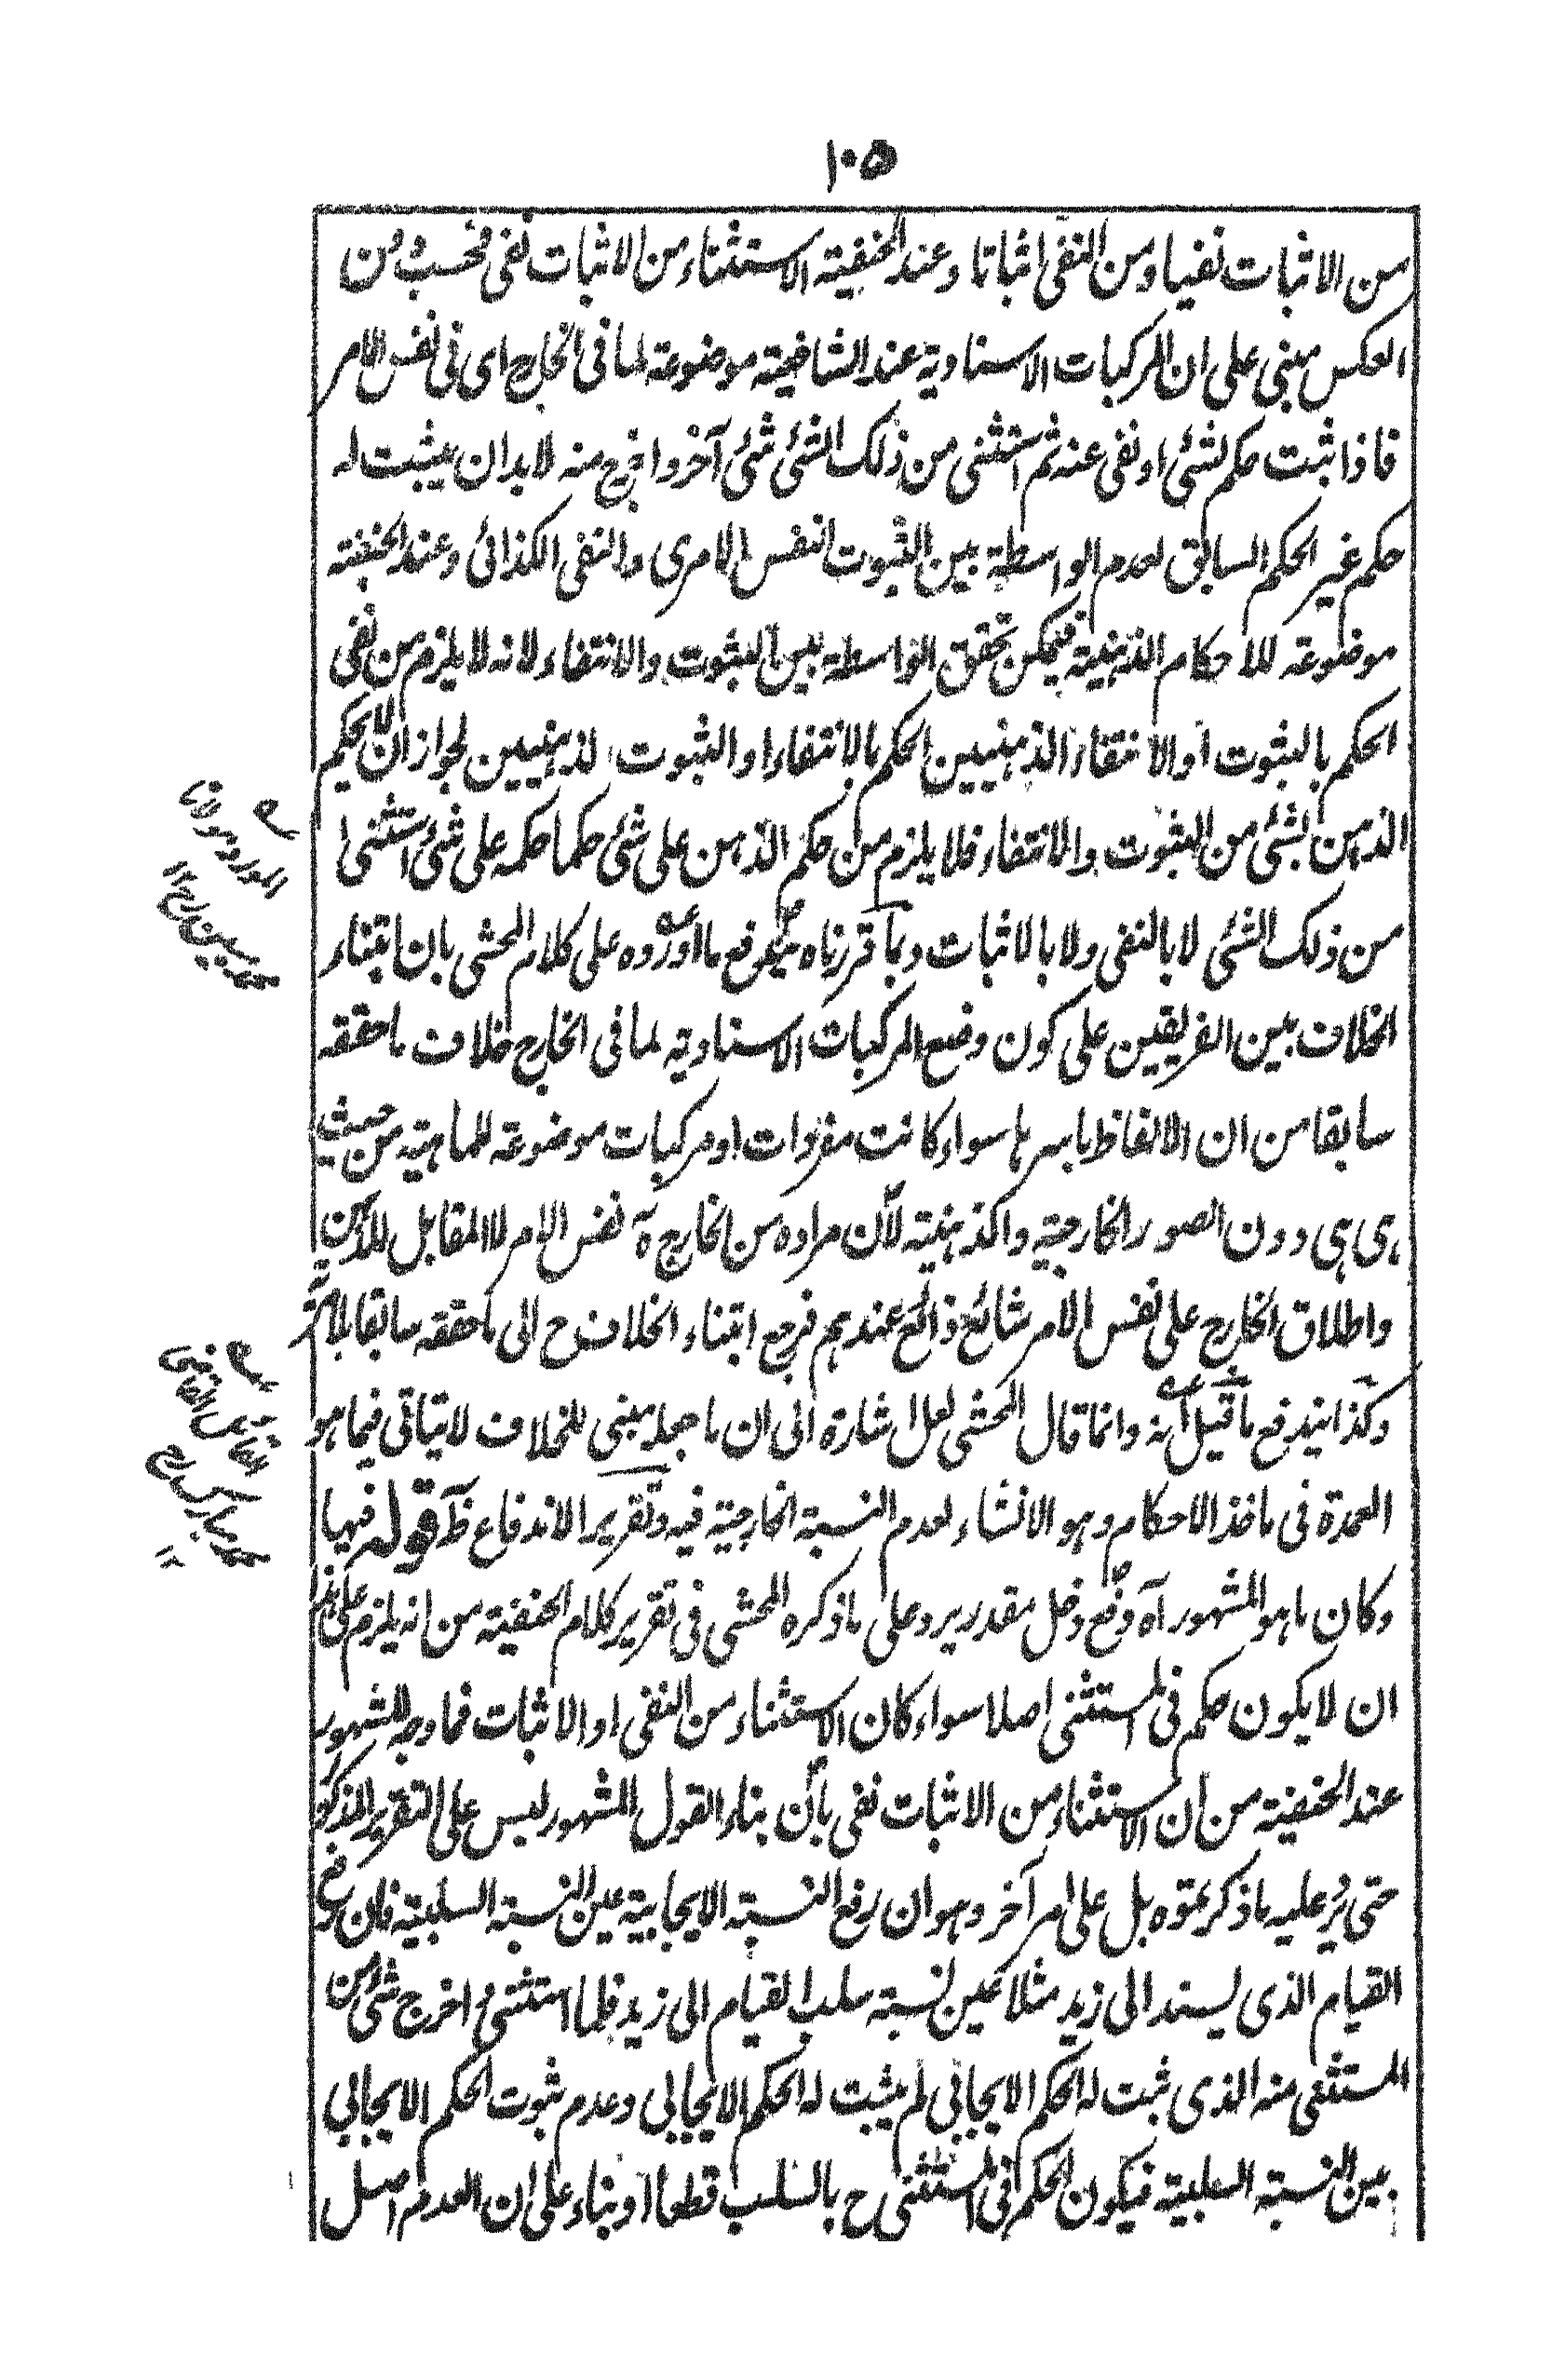 ١٠٥
من الاثبات نفيا ومن النفى اثباتا وعند الحنفية الاستثناء من الاثبات نفى فحسب دون
العكس مبنى على ان المركبات الاسنادية عند الشافعية موضوعة لما فى الخارج اى فى نفس الامر
فاذا ثبت حكم لشئ او نفى عنه ثم استثنى من ذلك الشئ شئ آخر واخرج منه لابد ان يثبت له
حكم غير الحكم السابق لعدم الواسطة بين الثبوت النفس الامرى والنفى الكذائى وعند الحنفية
موضوعة للاحكام الذهنية فيمكن تحقق الواسطة بين الثبوت والانتفاء لانه لا يلزم من نفى
الحكم بالثبوت او الانتفاء الذهنيين الحكم بالانتفاء او الثبوت الذهنيين لجواز ان لا يحكم
الذهن بشئ من الثبوت والانتفاء فلا يلزم من حكم الذهن على شئ حكما حكمه على شئ استثنى
من ذلك الشئ لا بالنفى ولا بالاثبات وبما قررناه يندفع ما اوردوه على كلام المحشى بان ابتناء
الخلاف بين الفريقين على كون وضع المركبات الاسنادية لما فى الخارج خلاف ما حققه
سابقا من ان الالفاظ باسرها سواء كانت مفردات او مركبات موضوعة للماهية من حيث
هى هى دون الصور الخارجية والذهنية لان مراده من الخارج ة نفس الامر لا المقابل للذهن
واطلاق الخارج على نفس الامر شائع ذائع عندهم فرجع ابتناء الخلاف ح الى ما حققه سابقا بلا
وكذا يندفع ما قيل انه وانما قال المحشى لعل اشارة الى ان ما جعل مبنى للخلاف لا يتاتى فيما هو
العمدة فى ماخذ الاحكام وهو الانشاء لعدم النسبة الخارجية فيه وتقرير الاندفاع ظ قوله فيها
وكان ما هو المشهور آه دفع دخل مقدر يرد على ما ذكره المحشى فى تقرير كلام الحنفية من انه يلزم على هذا
ان لا يكون حكم فى المستثنى اصلا سواء كان الاستثناء من النفى او الاثبات فما وجه المشهور
عند الحنفية من ان الاستثناء من الاثبات نفى بان بناء القول المشهور ليس على التقرير المذكور
حتى يرد عليه ما ذكرتموه بل على امر آخر وهو ان رفع النسبة الايجابية عين النسبة السلبية فان رفع
القيام الذى يسند الى زيد مثلا عين نسبة سلب القيام الى زيد فلما استثنى واخرج شئ من
المستثنى منه الذى ثبت له الحكم الايجابى لم يثبت له الحكم الايجابى وعدم ثبوت الحكم الايجابى
عين النسبة السلبية فيكون الحكم فى المستثنى ح بالسلب قطعا او بناء على ان العدم اصل